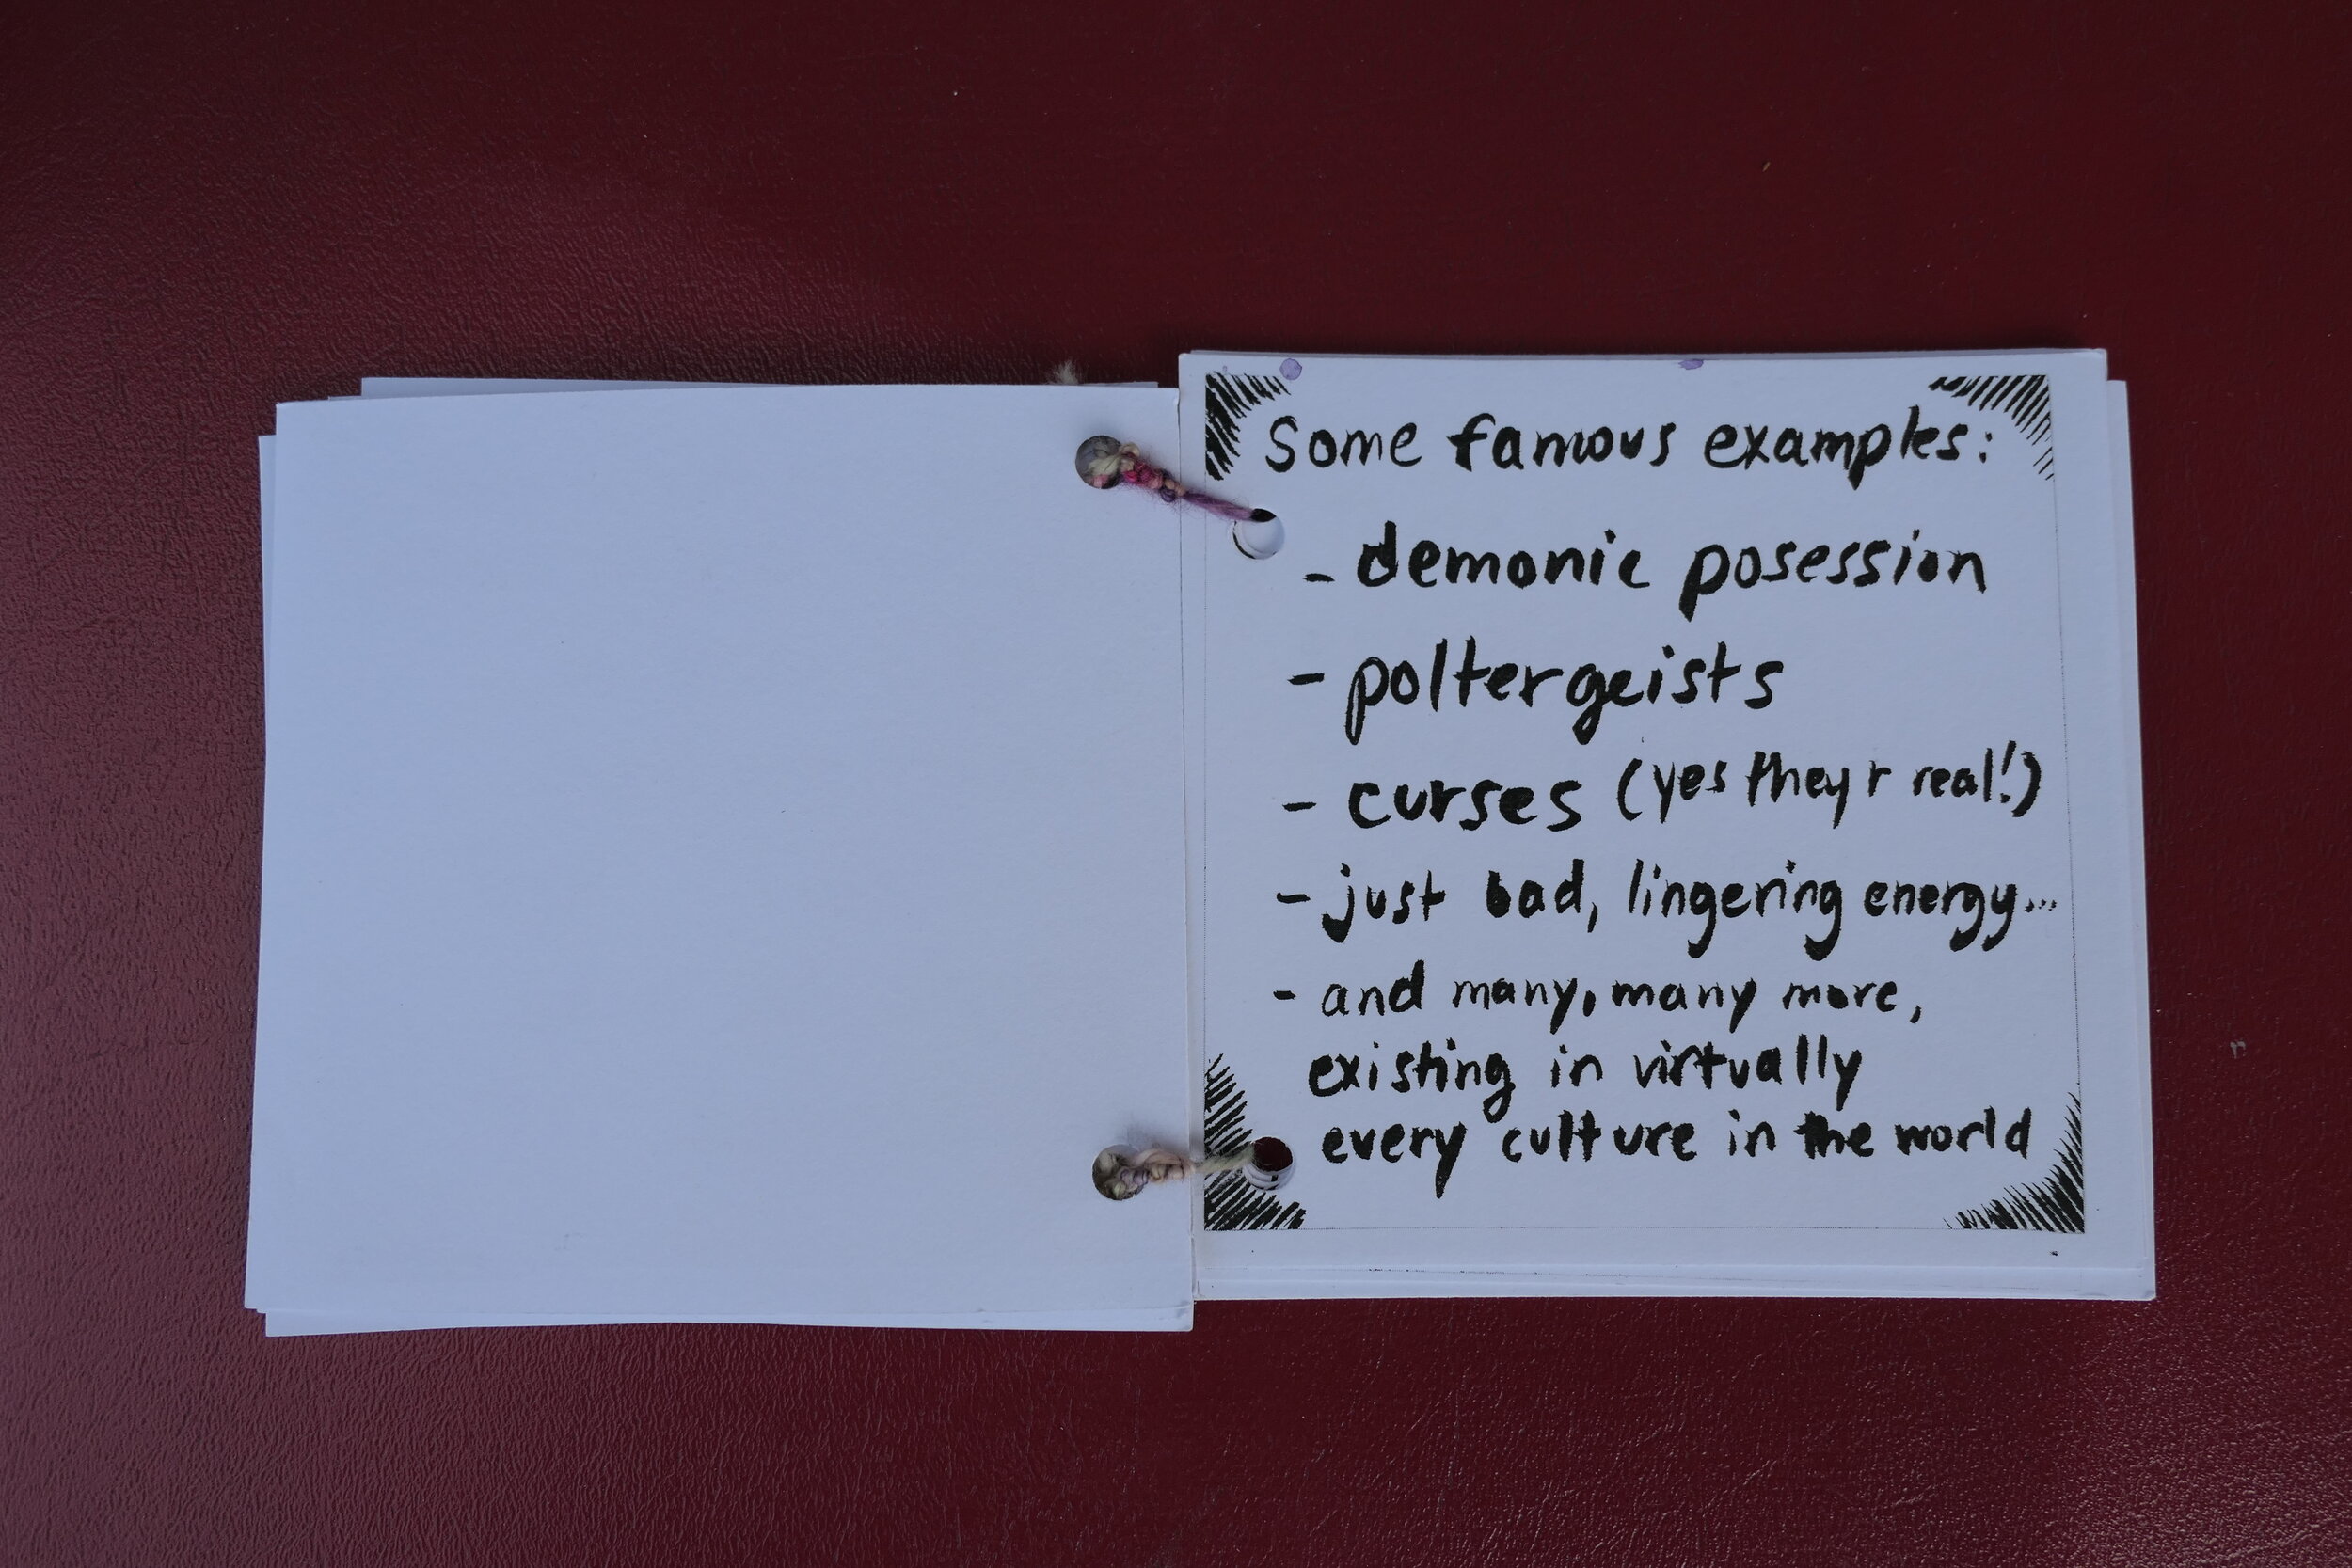 Some famous examples:
- demonic posession
- poltergeists
- curses (yes they r real!)
- just bad, lingering energy...
- and many, many more,
existing in virtually
every culture in the world